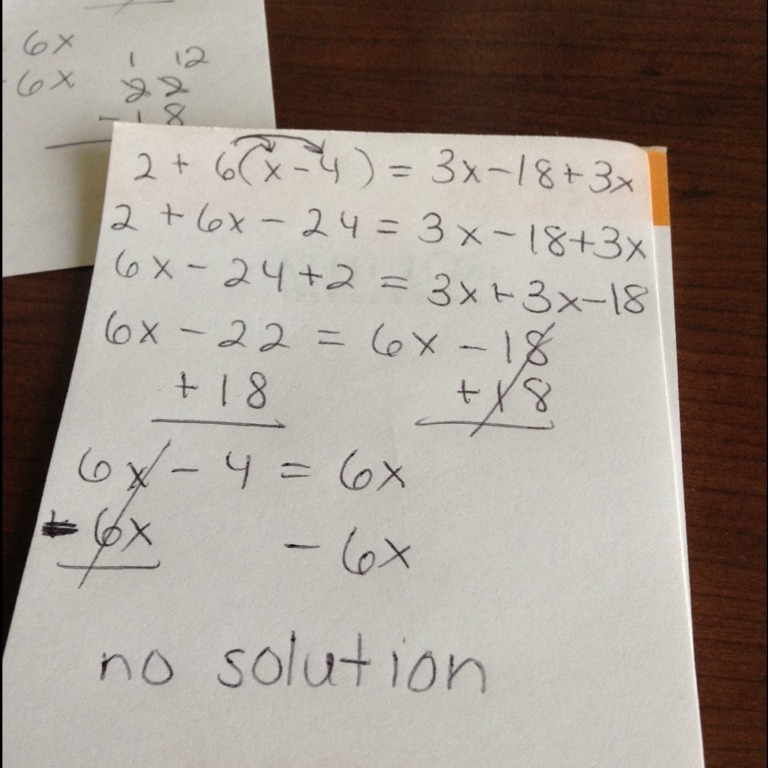 6x
1 12
-6x 22
- 18
2 + 6(x-4) = 3x-18+3x
2 + 6x - 24 = 3x-18+3x
6x - 24+2 = 3x+3x-18
6x - 22 = 6x - 18
+ 18 + 18
6x - 4 = 6x
- 6x - 6x
no solution